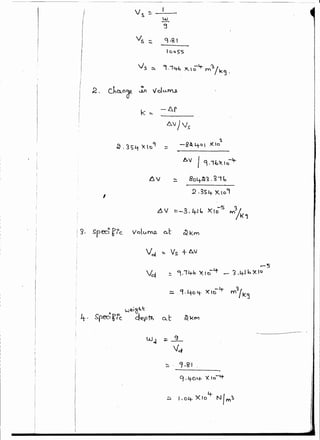 Vs = 1
w
g
Vs = 9.81
10055
Vs = 9.746 x 10^-4 m³/kg.
2. Change in Volume
k = -ΔP
Δv/Vs
2.354 x 10^9 = x 10³
Δv / 9.746 x 10^-4
Δv =
2.354 x 10^9
Δv = -3.416 x 10^-5 m³/kg
3. Specific Volume at 2km
Vd = Vs + Δv
Vd = 9.746 x 10^-4 - 3.416 x 10^-5
= 9.404 x 10^-4 m³/kg
4. Specific weight depth at 2km
wd = g
Vd
= 9.81
9.404 x 10^-4
= 1.04 x 10^4 N/m³